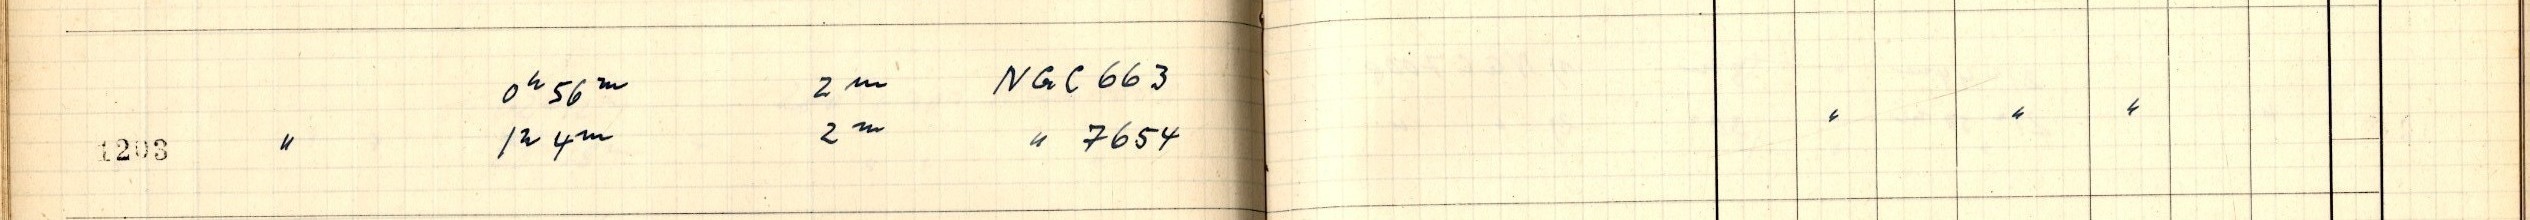 0h 56m 2m NGC 663
1203 " 1h 4m 2m " 7654 " " "